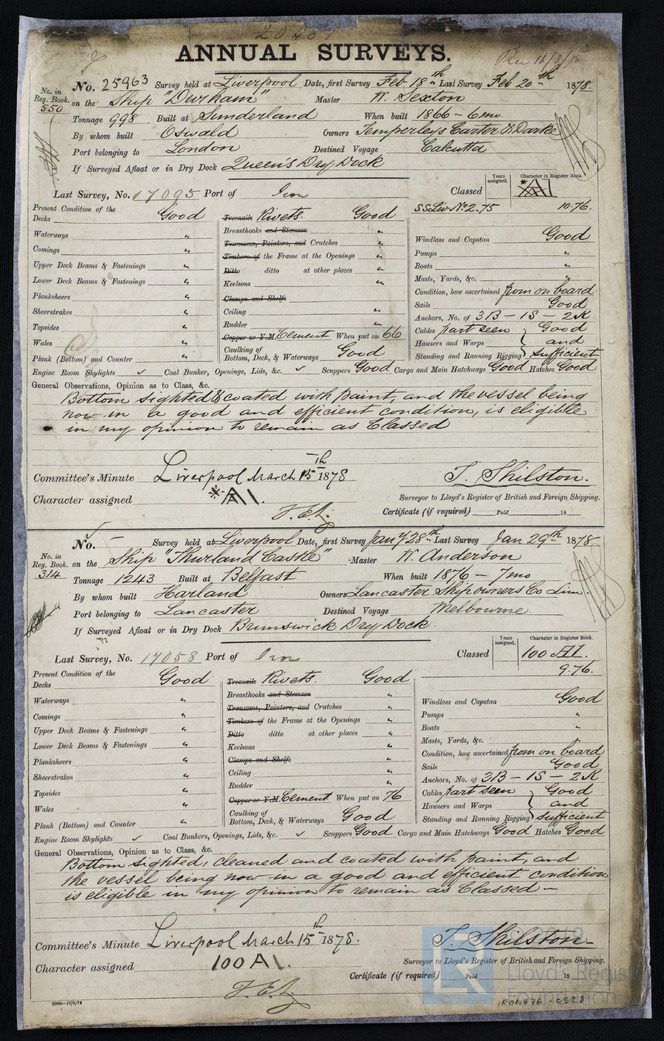 20461
ANNUAL SURVEYS.
Rec 16/3/78
No. in Reg. Book. 550
No. 25963 Survey held at Liverpool Date, first Survey Feb 18th Last Survey Feb 20th 1878.
on the Ship "Durham" Master W. Sexton
Tonnage 998 Built at Sunderland When built 1866 - 6 mo.
By whom built Oswald Owners Temperleys Carter & Darke
Port belonging to London Destined Voyage Calcutta
If Surveyed Afloat or in Dry Dock Queen's Dry Dock
Last Survey, No. 17095 Port of Iron Classed Years assigned. Character in Register Book.
A1
SS Liv No 2.75 10.76.
Present Condition of the
Decks Good
Waterways "
Comings "
Upper Deck Beams & Fastenings "
Lower Deck Beams & Fastenings "
Planksheers "
Sheerstrakes "
Topsides "
Wales "
Plank (Bottom) and Counter "
Treenails Rivets. Good
Breasthooks and Stemson "
Transoms, Pointers, and Crutches "
Timbers of the Frame at the Openings "
Ditto ditto at other places "
Keelsons "
Clamps and Shelfs
Ceiling "
Rudder "
Copper or Y.M. Cement When put on 66
Caulking of Bottom, Deck, & Waterways Good
Windlass and Capstan Good
Pumps "
Boats "
Masts, Yards, &c. "
Condition, how ascertained from on board
Sails Good
Anchors, No. of 3B - 1S - 2K
Cables part seen } Good
Hawsers and Warps } and
Standing and Running Rigging } sufficient
Engine Room Skylights ✓ Coal Bunker, Openings, Lids, &c. ✓ Scuppers Good Cargo and Main Hatchways Good Hatches Good
General Observations, Opinion as to Class, &c.
Bottom sighted & coated with paint, and the vessel being
now in a good and efficient condition, is eligible
in my opinion to remain as Classed
Committee's Minute Liverpool March 15th 1878
Character assigned A1.
T. Shilston.
Surveyor to Lloyd's Register of British and Foreign Shipping.
Certificate (if required) Paid 18
No. in Reg. Book. 314
No. - Survey held at Liverpool Date, first Survey Jany 28th Last Survey Jan 29th 1878
on the Ship "Thurland Castle" Master W. Anderson
Tonnage 1243 Built at Belfast When built 1876 - 7 mo
By whom built Harland Owners Lancaster Shipowners Co Lim
Port belonging to Lancaster Destined Voyage Melbourne.
If Surveyed Afloat or in Dry Dock Brunswick Dry Dock.
Last Survey, No. 17058 Port of Iron Classed Years assigned. Character in Register Book.
100 A1.
9.76.
Present Condition of the
Decks Good
Waterways "
Comings "
Upper Deck Beams & Fastenings "
Lower Deck Beams & Fastenings "
Planksheers "
Sheerstrakes "
Topsides "
Wales "
Plank (Bottom) and Counter "
Treenails Rivets. Good
Breasthooks and Stemson "
Transoms, Pointers, and Crutches "
Timbers of the Frame at the Openings "
Ditto ditto at other places "
Keelsons "
Clamps and Shelfs
Ceiling "
Rudder "
Copper or Y.M. Cement When put on 76
Caulking of Bottom, Deck, & Waterways Good
Windlass and Capstan Good
Pumps "
Boats "
Masts, Yards, &c. "
Condition, how ascertained from on board
Sails Good
Anchors, No. of 3B - 1S - 2K
Cables part seen } Good
Hawsers and Warps } and
Standing and Running Rigging } sufficient
Engine Room Skylights ✓ Coal Bunkers, Openings, Lids, &c. ✓ Scuppers Good Cargo and Main Hatchways Good Hatches Good
General Observations, Opinion as to Class, &c.
Bottom sighted, cleaned and coated with paint, and
the vessel being now in a good and efficient condition
is eligible in my opinion to remain as Classed -
Committee's Minute Liverpool March 15th 1878.
Character assigned 100 A1.
T. Shilston.
Surveyor to Lloyd's Register of British and Foreign Shipping.
Certificate (if required) Paid 18
Lloyd's Register Foundation
IRON876-0528